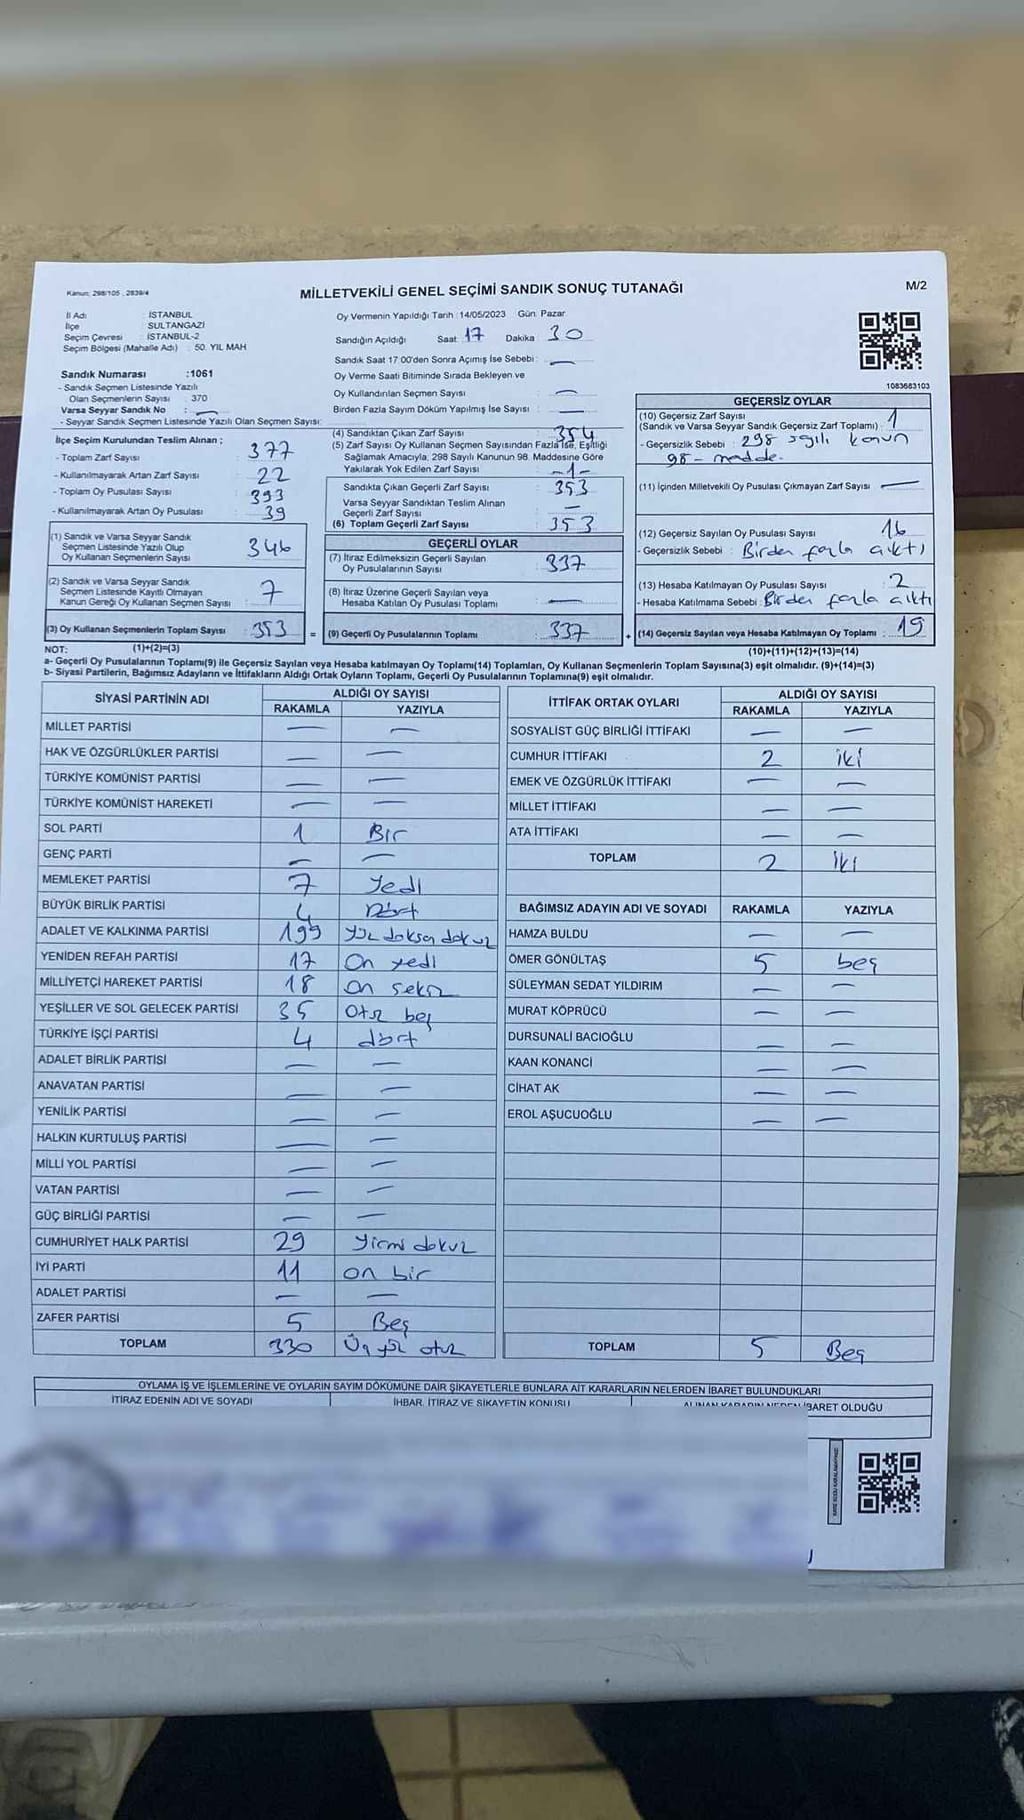 Kanun: 298/105 , 2839/4
MİLLETVEKİLİ GENEL SEÇİMİ SANDIK SONUÇ TUTANAĞI
M/2
İl Adı : İSTANBUL
İlçe : SULTANGAZİ
Seçim Çevresi : İSTANBUL-2
Seçim Bölgesi (Mahalle Adı) : 50. YIL MAH
Sandık Numarası :1061
- Sandık Seçmen Listesinde Yazılı
Olan Seçmenlerin Sayısı : 370
Varsa Seyyar Sandık No : —
- Seyyar Sandık Seçmen Listesinde Yazılı Olan Seçmen Sayısı:
İlçe Seçim Kurulundan Teslim Alınan ;
- Toplam Zarf Sayısı : 377
- Kullanılmayarak Artan Zarf Sayısı : 22
- Toplam Oy Pusulası Sayısı : 393
- Kullanılmayarak Artan Oy Pusulası : 39
(1) Sandık ve Varsa Seyyar Sandık
Seçmen Listesinde Yazılı Olup
Oy Kullanan Seçmenlerin Sayısı : 346
(2) Sandık ve Varsa Seyyar Sandık
Seçmen Listesinde Kayıtlı Olmayan
Kanun Gereği Oy Kullanan Seçmen Sayısı : 7
(3) Oy Kullanan Seçmenlerin Toplam Sayısı : 353
(1)+(2)=(3)
Oy Vermenin Yapıldığı Tarih :14/05/2023 Gün: Pazar
Sandığın Açıldığı Saat: 17 Dakika : 30
Sandık Saat 17:00'den Sonra Açımış İse Sebebi : —
Oy Verme Saati Bitiminde Sırada Bekleyen ve
Oy Kullandırılan Seçmen Sayısı : —
Birden Fazla Sayım Döküm Yapılmış İse Sayısı : —
(4) Sandıktan Çıkan Zarf Sayısı : 354
(5) Zarf Sayısı Oy Kullanan Seçmen Sayısından Fazla İse, Eşitliği
Sağlamak Amacıyla, 298 Sayılı Kanunun 98. Maddesine Göre
Yakılarak Yok Edilen Zarf Sayısı : -1-
Sandıkta Çıkan Geçerli Zarf Sayısı : 353
Varsa Seyyar Sandıktan Teslim Alınan
Geçerli Zarf Sayısı : —
(6) Toplam Geçerli Zarf Sayısı : 353
GEÇERLİ OYLAR
(7) İtiraz Edilmeksizin Geçerli Sayılan
Oy Pusulalarının Sayısı : 337
(8) İtiraz Üzerine Geçerli Sayılan veya
Hesaba Katılan Oy Pusulası Toplamı : —
= (9) Geçerli Oy Pusulalarının Toplamı : 337 +
1083683103
GEÇERSİZ OYLAR
(10) Geçersiz Zarf Sayısı
(Sandık ve Varsa Seyyar Sandık Geçersiz Zarf Toplamı) : 1
- Geçersizlik Sebebi : 298 sayılı kanun
98 - madde.
(11) İçinden Milletvekili Oy Pusulası Çıkmayan Zarf Sayısı : —
(12) Geçersiz Sayılan Oy Pusulası Sayısı : 16
- Geçersizlik Sebebi : Birden fazla çıktı
(13) Hesaba Katılmayan Oy Pusulası Sayısı : 2
- Hesaba Katılmama Sebebi : Birden fazla çıktı
(14) Geçersiz Sayılan veya Hesaba Katılmayan Oy Toplamı : 19
(10)+(11)+(12)+(13)=(14)
NOT:
a- Geçerli Oy Pusulalarının Toplamı(9) ile Geçersiz Sayılan veya Hesaba katılmayan Oy Toplamı(14) Toplamları, Oy Kullanan Seçmenlerin Toplam Sayısına(3) eşit olmalıdır. (9)+(14)=(3)
b- Siyasi Partilerin, Bağımsız Adayların ve İttifakların Aldığı Ortak Oyların Toplamı, Geçerli Oy Pusulalarının Toplamına(9) eşit olmalıdır.
SİYASİ PARTİNİN ADI ALDIĞI OY SAYISI
RAKAMLA YAZIYLA
MİLLET PARTİSİ — —
HAK VE ÖZGÜRLÜKLER PARTİSİ — —
TÜRKİYE KOMÜNİST PARTİSİ — —
TÜRKİYE KOMÜNİST HAREKETİ — —
SOL PARTİ 1 Bir
GENÇ PARTİ — —
MEMLEKET PARTİSİ 7 Yedi
BÜYÜK BİRLİK PARTİSİ 4 Dört
ADALET VE KALKINMA PARTİSİ 199 Yüz doksan dokuz
YENİDEN REFAH PARTİSİ 17 On yedi
MİLLİYETÇİ HAREKET PARTİSİ 18 On sekiz
YEŞİLLER VE SOL GELECEK PARTİSİ 35 Otuz beş
TÜRKİYE İŞÇİ PARTİSİ 4 dört
ADALET BİRLİK PARTİSİ — —
ANAVATAN PARTİSİ — —
YENİLİK PARTİSİ — —
HALKIN KURTULUŞ PARTİSİ — —
MİLLİ YOL PARTİSİ — —
VATAN PARTİSİ — —
GÜÇ BİRLİĞİ PARTİSİ — —
CUMHURİYET HALK PARTİSİ 29 Yirmi dokuz
İYİ PARTİ 11 on bir
ADALET PARTİSİ — —
ZAFER PARTİSİ 5 Beş
TOPLAM 330 Üç yüz otuz
İTTİFAK ORTAK OYLARI ALDIĞI OY SAYISI
RAKAMLA YAZIYLA
SOSYALİST GÜÇ BİRLİĞİ İTTİFAKI — —
CUMHUR İTTİFAKI 2 iki
EMEK VE ÖZGÜRLÜK İTTİFAKI — —
MİLLET İTTİFAKI — —
ATA İTTİFAKI — —
TOPLAM 2 İki
BAĞIMSIZ ADAYIN ADI VE SOYADI RAKAMLA YAZIYLA
HAMZA BULDU — —
ÖMER GÖNÜLTAŞ 5 beş
SÜLEYMAN SEDAT YILDIRIM — —
MURAT KÖPRÜCÜ — —
DURSUNALİ BACIOĞLU — —
KAAN KONANCİ — —
CİHAT AK — —
EROL AŞUCUOĞLU — —
TOPLAM 5 Beş
OYLAMA İŞ VE İŞLEMLERİNE VE OYLARIN SAYIM DÖKÜMÜNE DAİR ŞİKAYETLERLE BUNLARA AİT KARARLARIN NELERDEN İBARET BULUNDUKLARI
İTİRAZ EDENİN ADI VE SOYADI İHBAR, İTİRAZ VE ŞİKAYETİN KONUSU ALINAN KARARIN NEDEN İBARET OLDUĞU